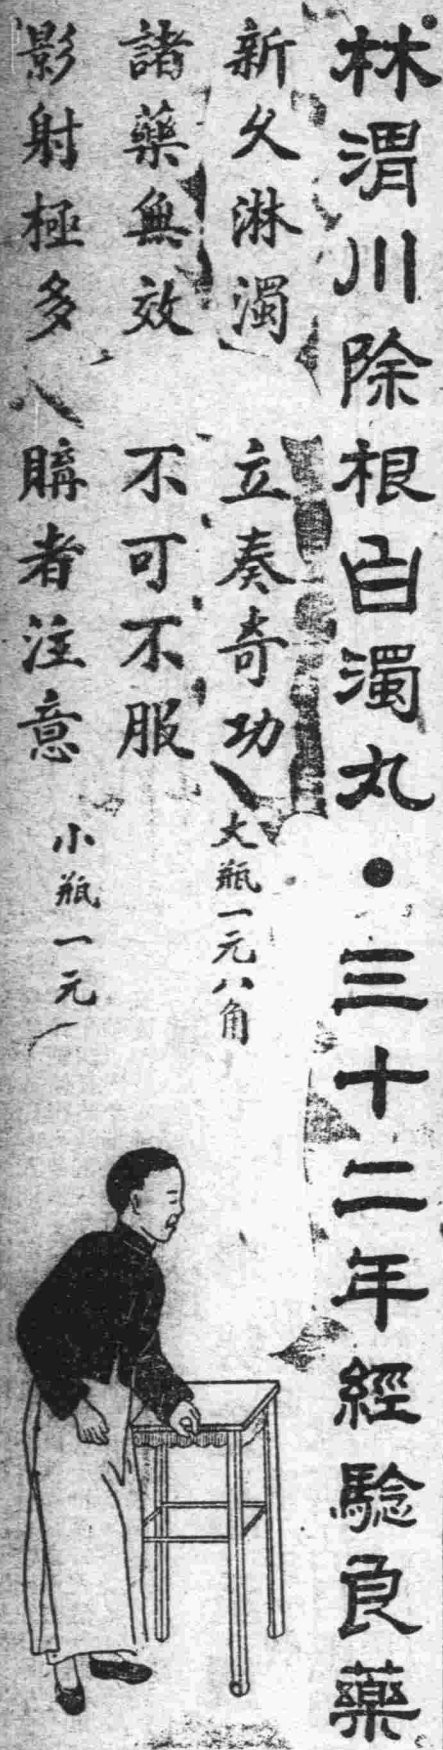 林渭川除根白濁丸●三十二年經騐良藥
新久淋濁 立奏奇功
大瓶一元八角
諸藥無效 不可不服
影射極多 購者注意
小瓶一元